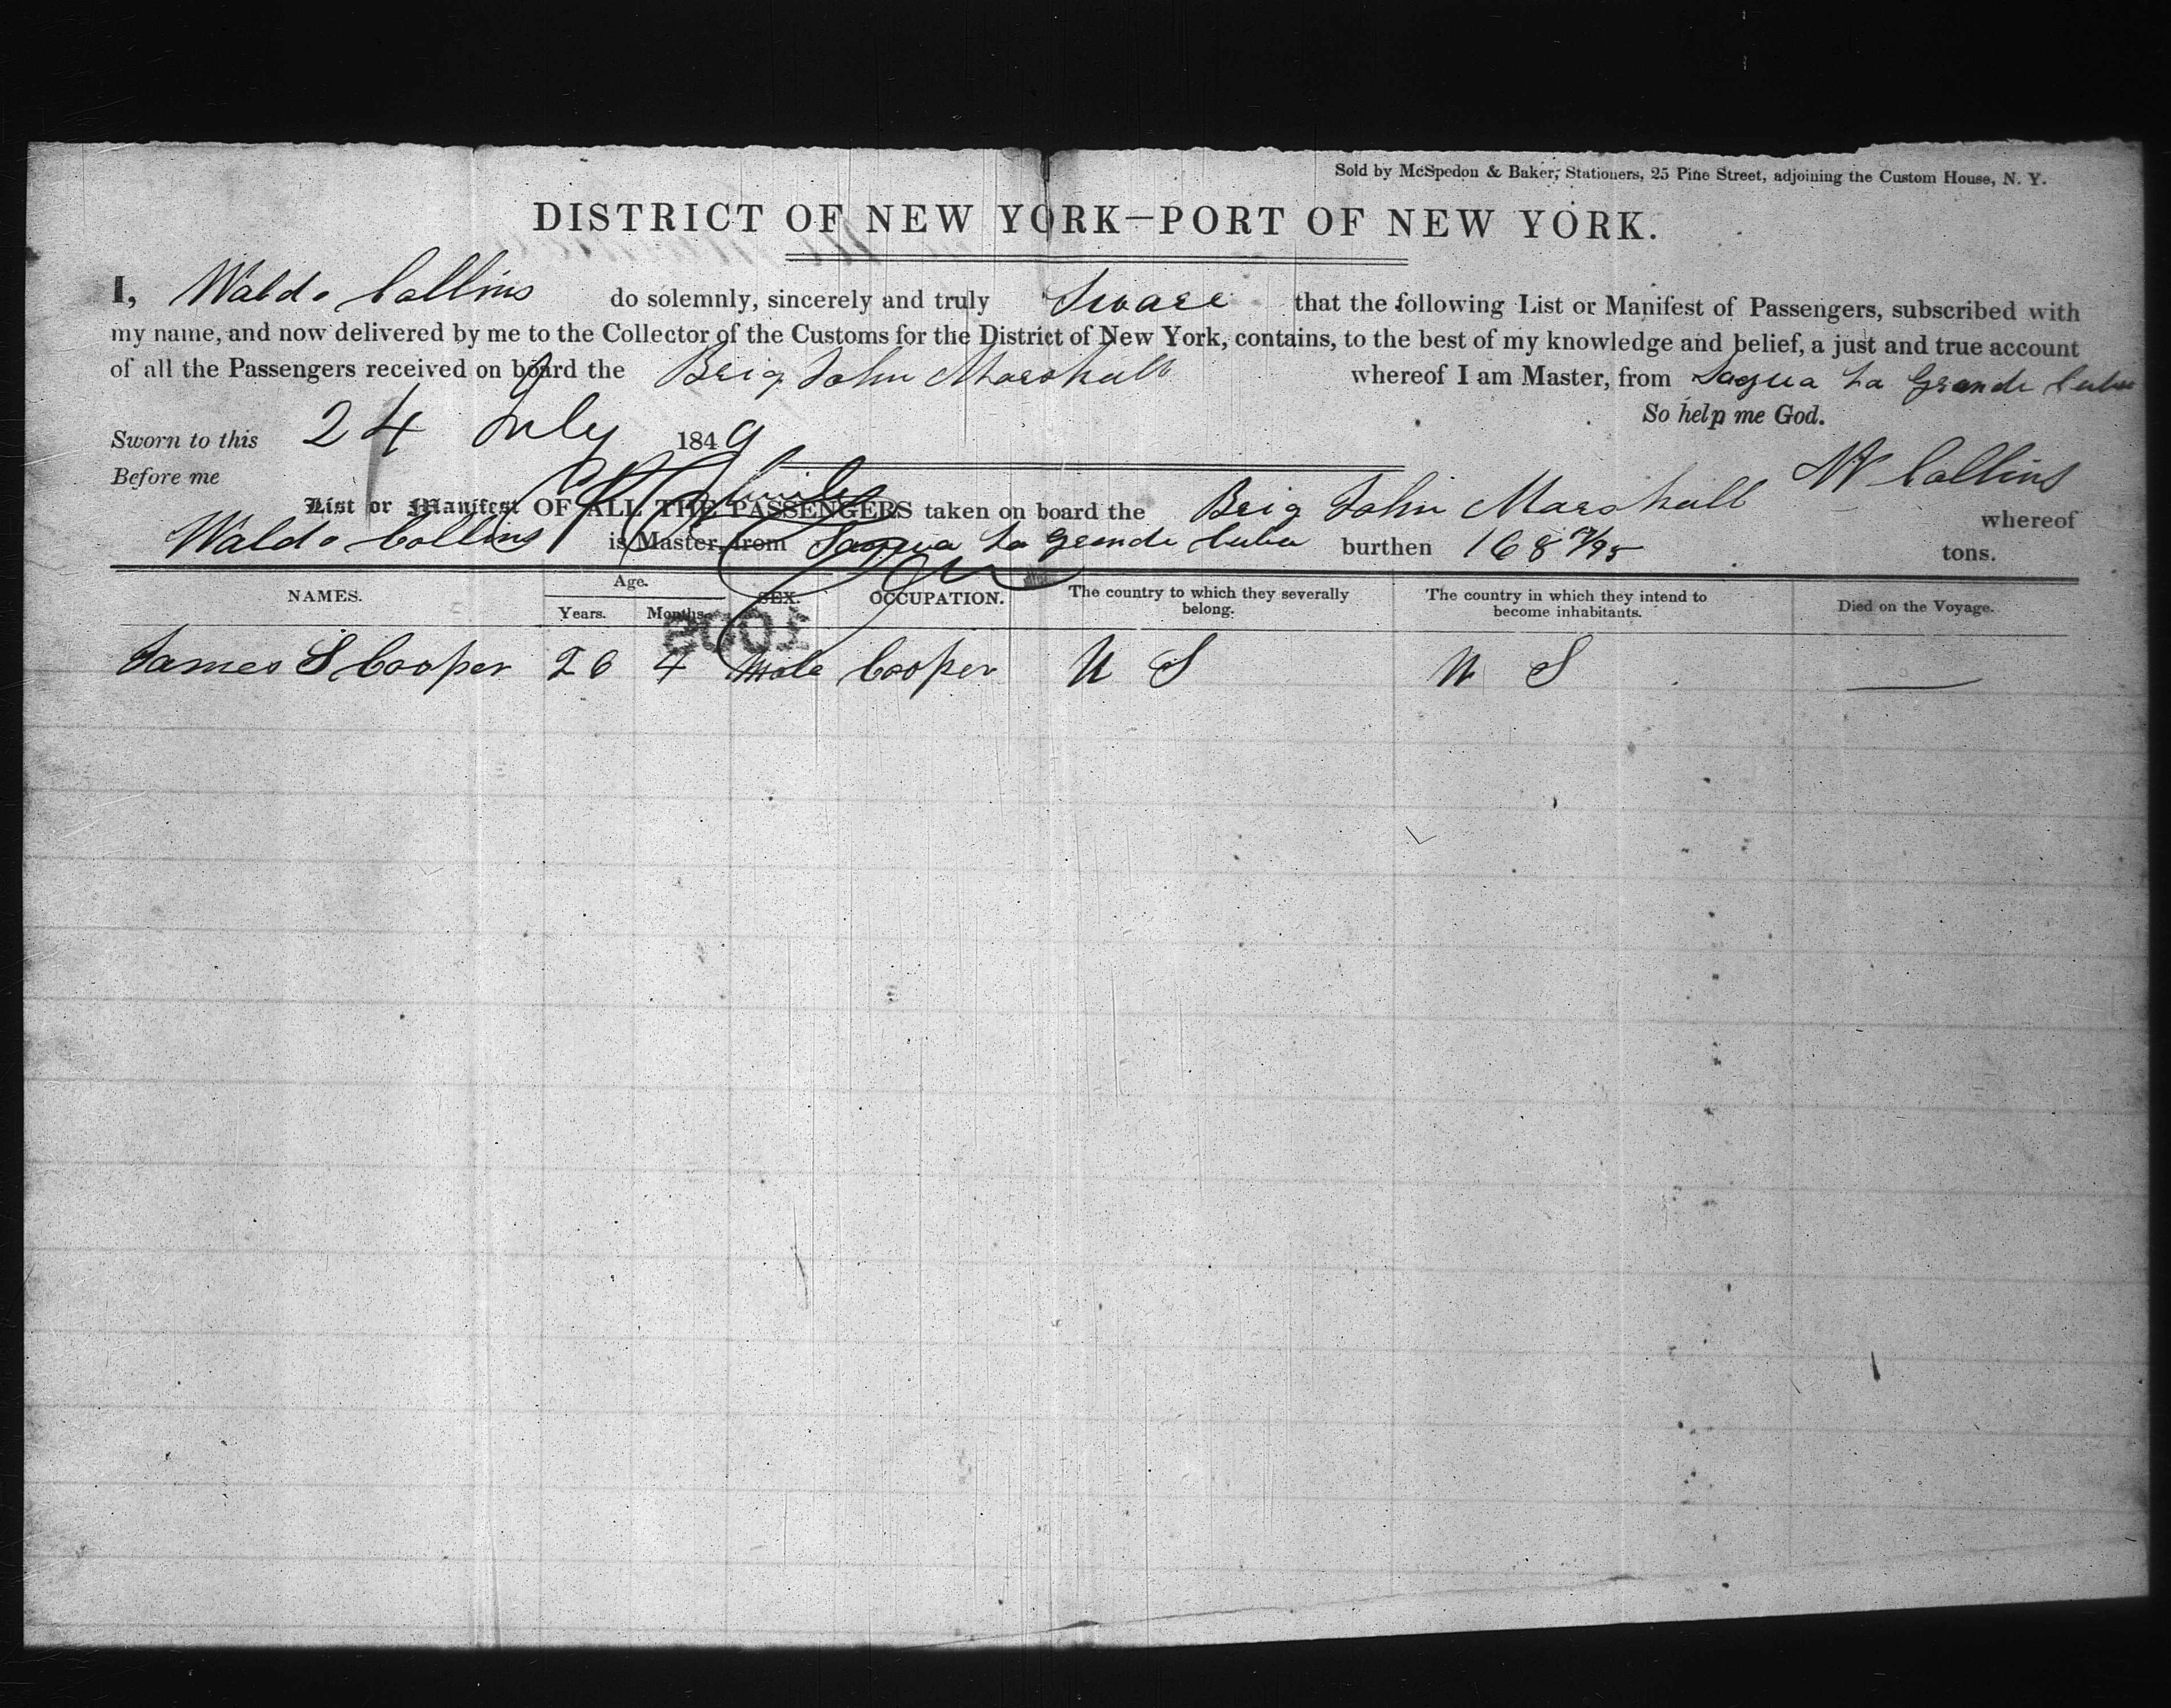 Sold by McSpedon & Baker, Stationers, 25 Pine Street, adjoining the Custom House, N. Y.
DISTRICT OF NEW YORK—PORT OF NEW YORK.
I, Waldo Collins do solemnly, sincerely and truly Swear that the following List or Manifest of Passengers, subscribed with
my name, and now delivered by me to the Collector of the Customs for the District of New York, contains, to the best of my knowledge and belief, a just and true account
of all the Passengers received on board the Brig John Marshall whereof I am Master, from Sagua La Grande Cuba
So help me God.
Sworn to this 24 July 1849
Before me W Collins
List or Manifest OF ALL THE PASSENGERS taken on board the Brig John Marshall whereof
Waldo Collins is Master, from Sagua La Grande Cuba burthen 168 tons.
NAMES. Age. Years. Months. SEX. OCCUPATION. The country to which they severally belong. The country in which they intend to become inhabitants. Died on the Voyage.
1005
James S Cooper 26 4 Male Cooper U S U S —